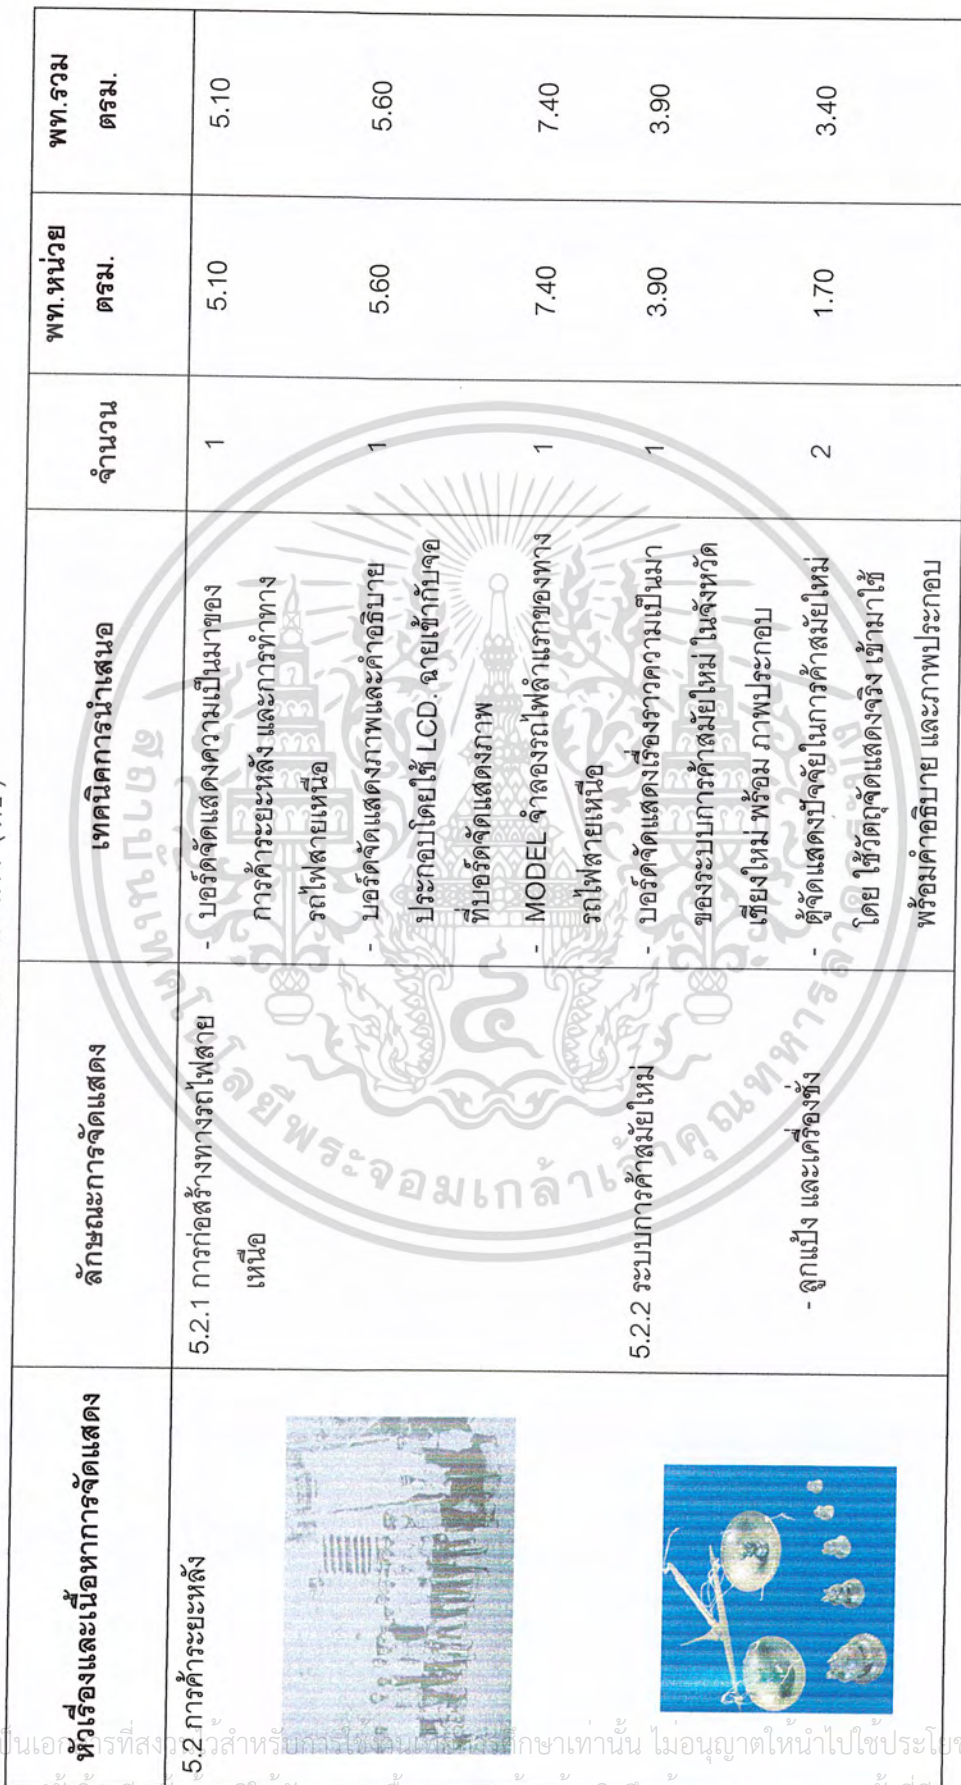 หัวเรื่องและเนื้อหาการจัดแสดง
ลักษณะการจัดแสดง
เทคนิคการนำเสนอ
จำนวน
พท.หน่วย
ตรม.
พท.รวม
ตรม.
5.2 การค้าระยะหลัง
5.2.1 การก่อสร้างทางรถไฟสาย
เหนือ
- บอร์ดจัดแสดงความเป็นมาของ
การค้าระยะหลัง และการทำทาง
รถไฟสายเหนือ
1
5.10
5.10
- บอร์ดจัดแสดงภาพและคำอธิบาย
ประกอบโดยใช้ LCD. ฉายเข้ากับจอ
ที่บอร์ดจัดแสดงภาพ
1
5.60
5.60
- MODEL จำลองรถไฟลำแรกของทาง
รถไฟสายเหนือ
1
7.40
7.40
5.2.2 ระบบการค้าสมัยใหม่
- บอร์ดจัดแสดงเรื่องราวความเป็นมา
ของระบบการค้าสมัยใหม่ ในจังหวัด
เชียงใหม่ พร้อม ภาพประกอบ
1
3.90
3.90
- ลูกแป้ง และเครื่องชั่ง
- ตู้จัดแสดงปัจจัยในการค้าสมัยใหม่
โดย ใช้วัตถุจัดแสดงจริง เข้ามาใช้
พร้อมคำอธิบาย และภาพประกอบ
2
1.70
3.40
สถาบันเทคโนโลยีพระจอมเกล้าเจ้าคุณทหารลาดกระบัง